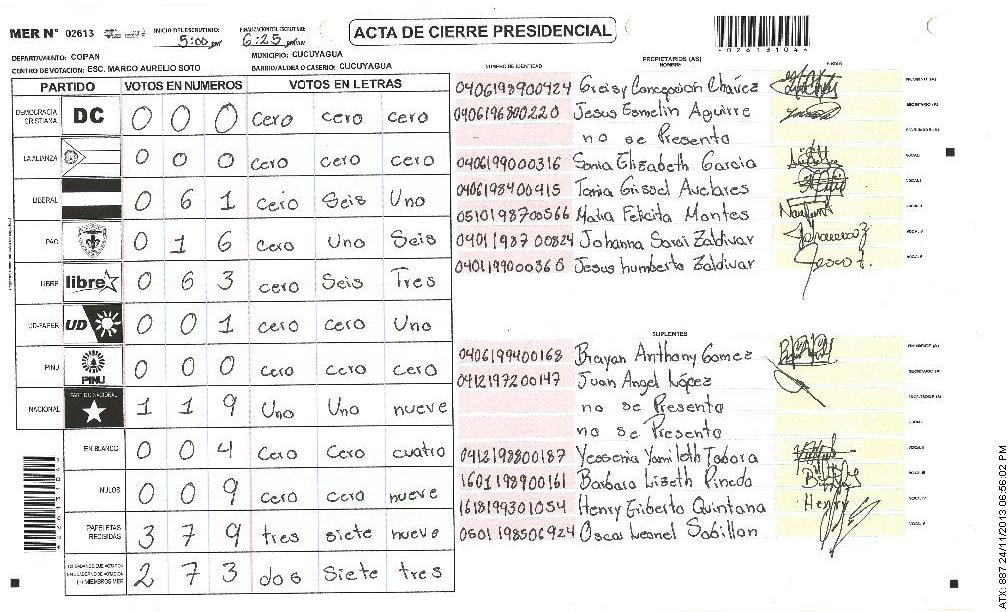 MER N° 02613
INICIO DE ESCRUTINIO: 5:00 pm
FINALIZACION DEL ESCRUTINIO: 6:25 pm
ACTA DE CIERRE PRESIDENCIAL
026131044
DEPARTAMENTO: COPAN
MUNICIPIO: CUCUYAGUA
CENTRO DE VOTACION: ESC. MARCO AURELIO SOTO
BARRIO/ALDEA O CASERIO: CUCUYAGUA
PARTIDO VOTOS EN NUMEROS VOTOS EN LETRAS
DEMOCRACIA CRISTIANA DC 0 0 0 cero cero cero
LA ALIANZA 0 0 0 cero cero cero
LIBERAL 0 6 1 cero Seis Uno
PAC 0 1 6 cero Uno Seis
LIBRE libre 0 6 3 cero Seis Tres
UD-FAPER UD 0 0 1 cero cero Uno
PINU PINU 0 0 0 cero cero cero
NACIONAL PARTIDO NACIONAL 1 1 9 Uno Uno nueve
EN BLANCO 0 0 4 Cero Cero cuatro
NULOS 0 0 9 cero cero nueve
PAPELETAS RECIBIDAS 3 7 9 tres siete nueve
(+) MIEMBROS MER 2 7 3 dos Siete tres
NUMERO DE IDENTIDAD PROPIETARIOS (AS) NOMBRE FIRMA
0406198900424 Greisy Concepcion Chávez
0406196800220 Jesus Esmelin Aguirre
no se Presento
0406199000316 Sonia Elizabeth Garcia
0406198400415 Tania Grissel Avelares
0510198700566 Maria Felicita Montes
0401198700824 Johanna Sarai Zaldivar
0401199000366 Jesus humberto Zaldivar
SUPLENTES
0406199400168 Brayan Anthony Gomez
0412197200147 Juan Angel López
no se Presento
no se Presento
0412198800187 Yessenia Yamileth Tabora
1601198900161 Barbara Lizeth Pineda
1618199301054 Henry Gilberto Quintana Henry
0501198506924 Oscar Leonel Sabillon
ATX: 887 24/11/2013 06:56:02 PM